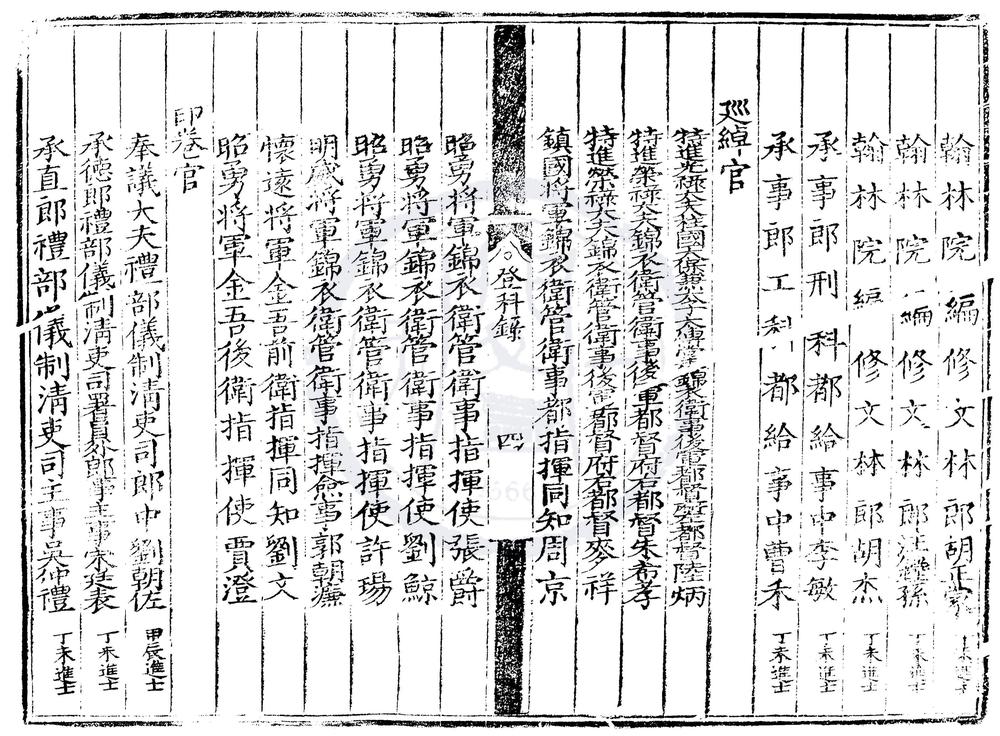 翰林院編修文林郎胡正蒙丁未進士
翰林院編修文林郎汪鏜孫丁未進士
翰林院編修文林郎胡杰丁未進士
承事郎刑科都給事中李敏丁未進士
承事郎工科都給事中曹禾丁未進士
廵綽官
特進光祿大夫柱國少保兼太子太傅掌錦衣衛事後軍都督府左都督陸炳
特進榮祿大夫錦衣衛管衛事後軍都督府右都督朱希孝
特進榮祿大夫錦衣衛管衛事後軍都督府右都督麥祥
鎮國將軍錦衣衛管衛事都指揮同知周京
登科錄
四
昭勇將軍錦衣衛管衛事指揮使張爵
昭勇將軍錦衣衛管衛事指揮使劉鯨
昭勇將軍錦衣衛管衛事指揮使許瑒
明威將軍錦衣衛管衛事指揮僉事郭朝濂
懷遠將軍金吾前衛指揮同知劉文
昭勇將軍金吾後衛指揮使賈澄
印卷官
奉議大夫禮部儀制清吏司郎中劉朝佐甲辰進士
承德郎禮部儀制清吏司署員外郎事主事宋廷表丁未進士
承直郎禮部儀制清吏司主事吳仲禮丁未進士